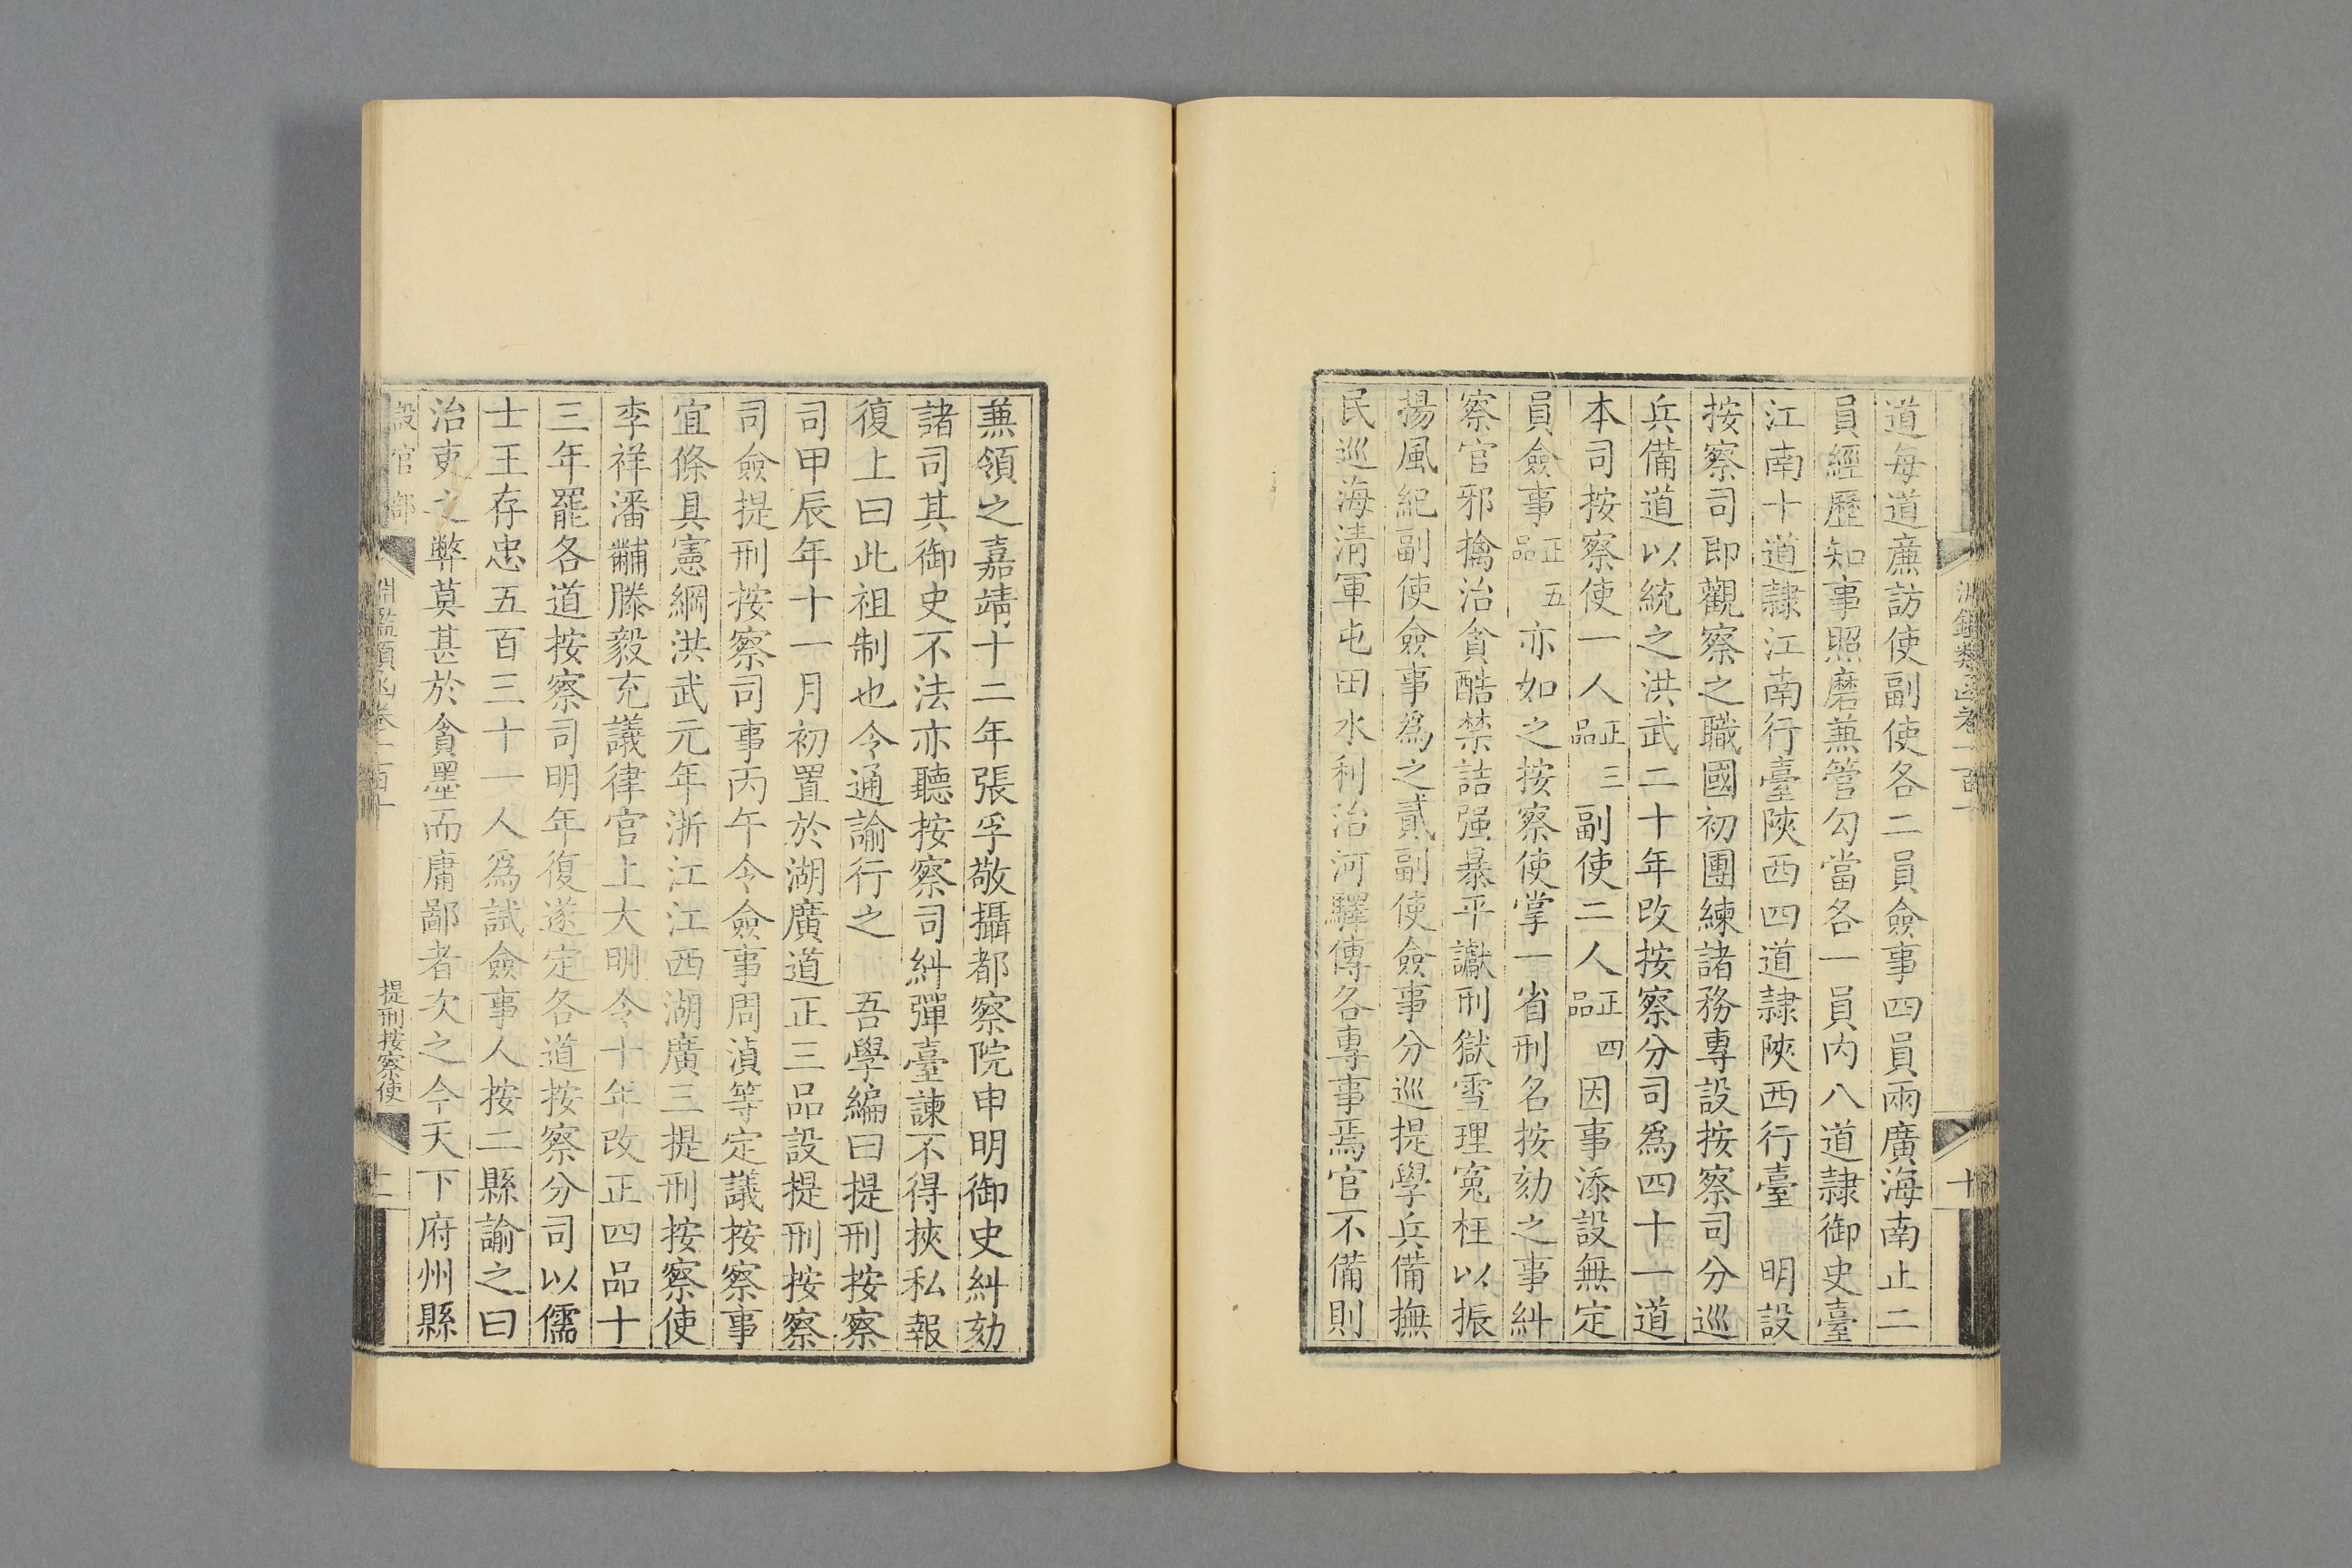 道每道廉訪使副使各二員僉事四員兩廣海南止二
員經歷知事照磨兼管勾當各一員内八道隷御史臺
江南十道隷江南行臺陝西四道隷陝西行臺　明設
按察司即觀察之職國初團練諸務專設按察司分巡
兵備道以統之洪武二十年改按察分司爲四十一道
本司按察使一人正三品副使二人正四品因事添設無定
員僉事正五品亦如之按察使掌一省刑名按劾之事糾
察官邪擒治貪酷禁詰强暴平讞刑獄雪理寃枉以振
揚風紀副使僉事爲之貳副使僉事分巡提學兵備撫
民巡海淸軍屯田水利治河驛傳各專事焉官不備則
兼領之嘉靖十二年張孚敬攝都察院申明御史糾劾
諸司其御史不法亦聽按察司糾彈臺諫不得挾私報
復上曰此祖制也令通諭行之　吾學編曰提刑按察
司甲辰年十一月初置於湖廣道正三品設提刑按察
司僉提刑按察司事丙午令僉事周湞等定議按察事
宜條具憲綱洪武元年浙江江西湖廣三提刑按察使
李祥潘黼滕毅充議律官上大明令十年改正四品十
三年罷各道按察司明年復遂定各道按察分司以儒
士王存忠五百三十一人爲試僉事人按二縣諭之曰
治吏之弊莫甚於貪墨而庸鄙者次之今天下府州縣
設官部　淵鑑類函卷一百十　提刑按察使　十一